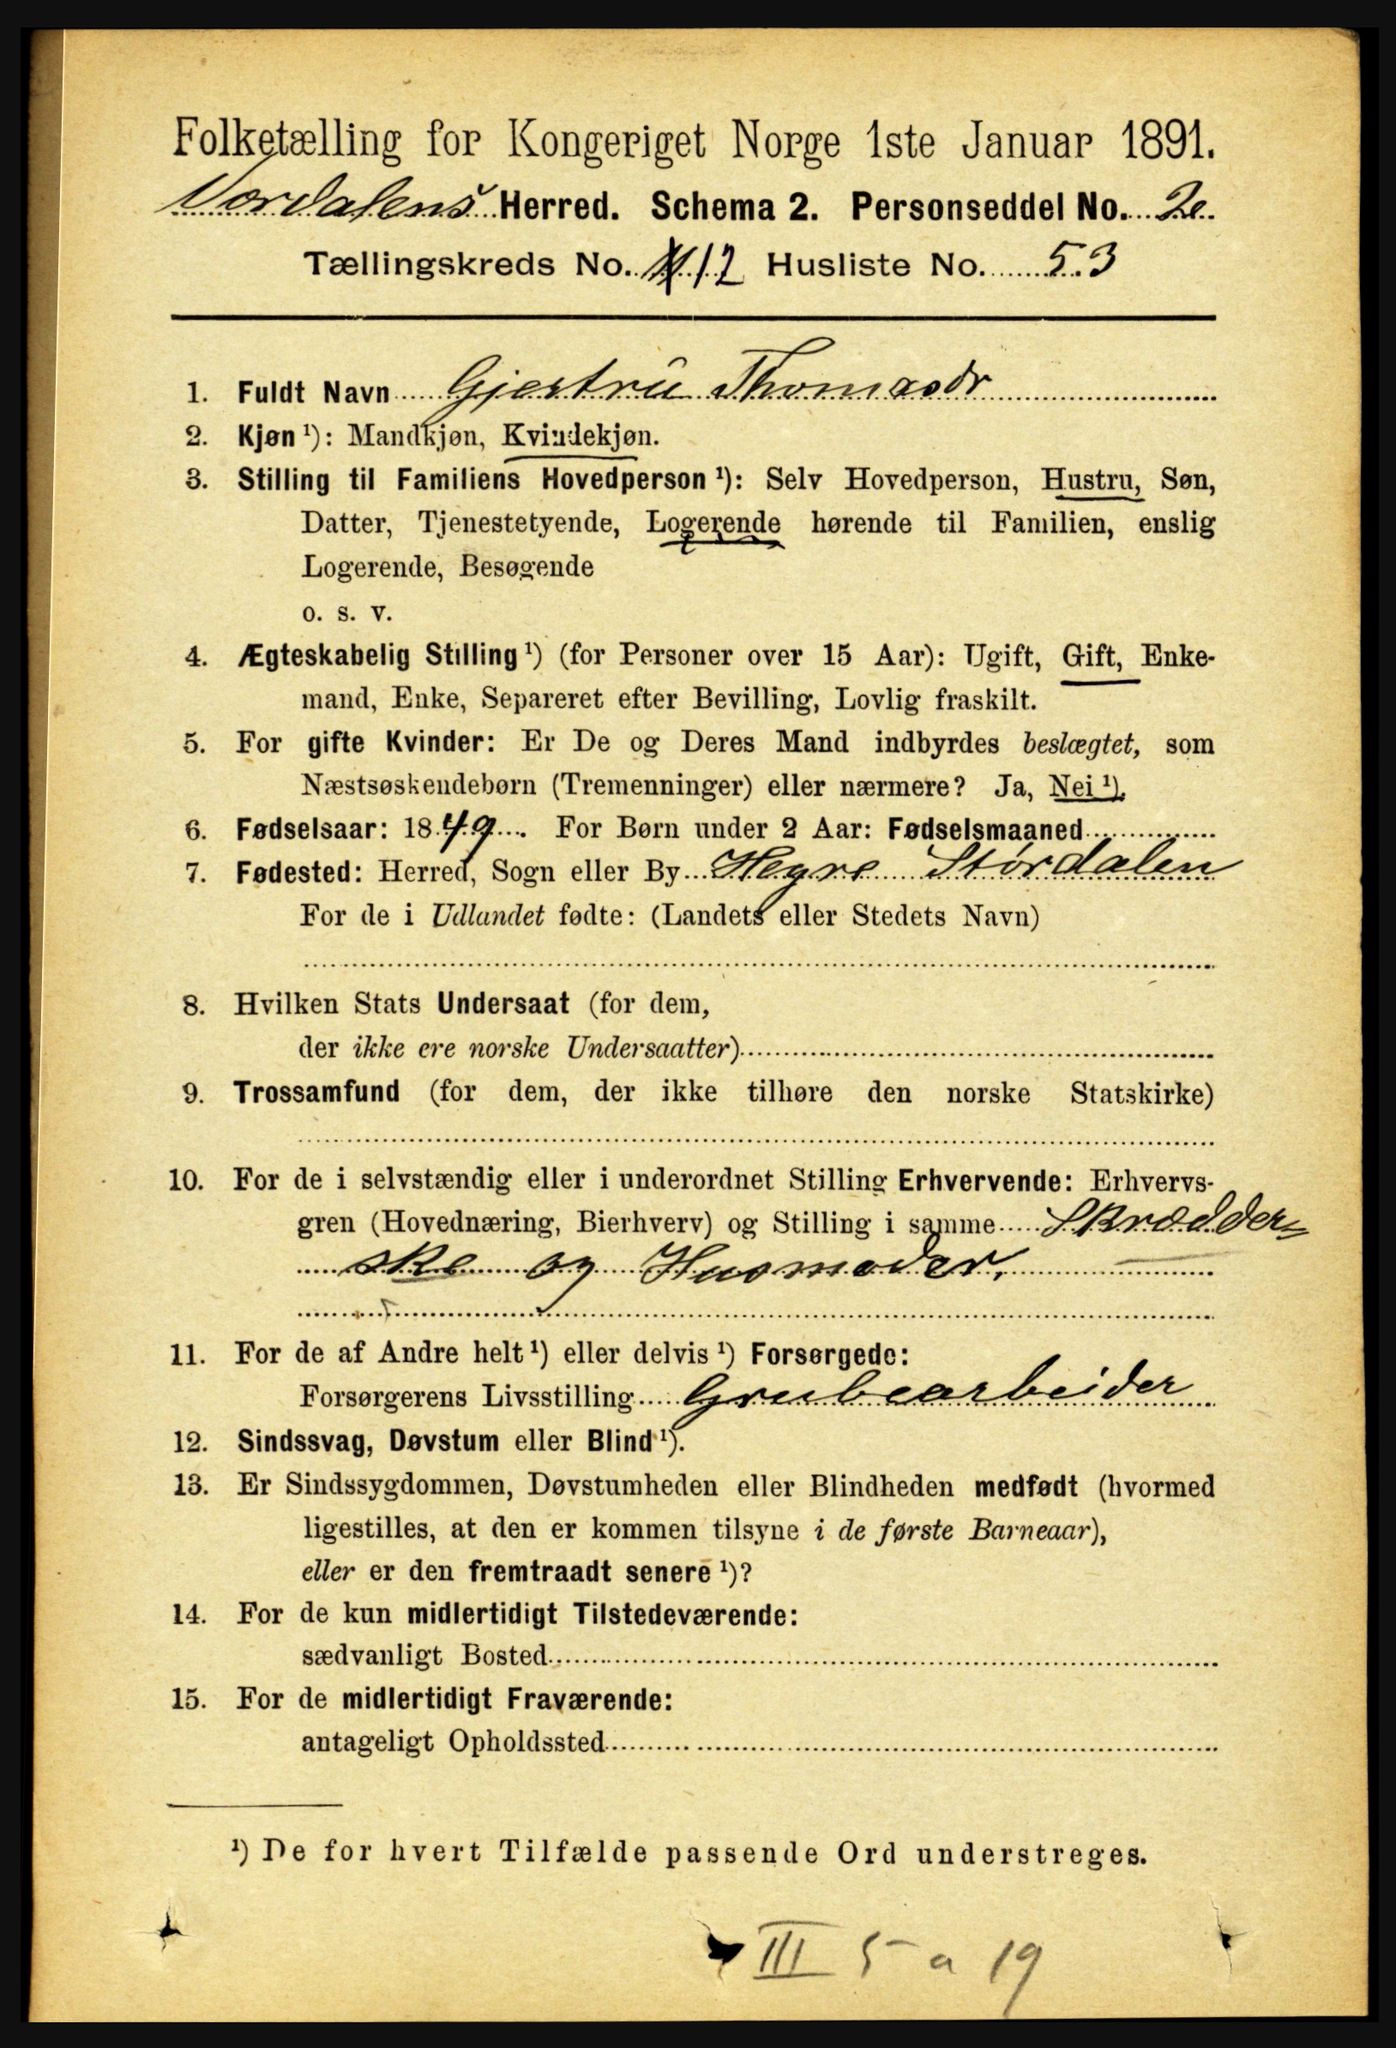 Folketælling for Kongeriget Norge 1ste Januar 1891.
Værdalens Herred. Schema 2. Personseddel No. 2
Tællingskreds No. 12 Husliste No. 53
1. Fuldt Navn Gjertru Thomasdr
2. Kjøn ¹): Mandkjøn, Kvindekjøn.
3. Stilling til Familiens Hovedperson ¹): Selv Hovedperson, Hustru, Søn,
Datter, Tjenestetyende, Logerende hørende til Familien, enslig
Logerende, Besøgende
o. s. v.
4. Ægteskabelig Stilling ¹) (for Personer over 15 Aar): Ugift, Gift, Enke-
mand, Enke, Separeret efter Bevilling, Lovlig fraskilt.
5. For gifte Kvinder: Er De og Deres Mand indbyrdes beslægtet, som
Næstsøskendebørn (Tremenninger) eller nærmere? Ja, Nei ¹).
6. Fødselsaar: 1849. For Børn under 2 Aar: Fødselsmaaned
7. Fødested: Herred, Sogn eller By Hegre Størdalen
For de i Udlandet fødte: (Landets eller Stedets Navn)
8. Hvilken Stats Undersaat (for dem,
der ikke ere norske Undersaatter)
9. Trossamfund (for dem, der ikke tilhøre den norske Statskirke)
10. For de i selvstændig eller i underordnet Stilling Erhvervende: Erhvervs-
gren (Hovednæring, Bierhverv) og Stilling i samme Skrædder=
ske og Husmoder.
11. For de af Andre helt ¹) eller delvis ¹) Forsørgede:
Forsørgerens Livsstilling Grubearbeider
12. Sindssvag, Døvstum eller Blind ¹).
13. Er Sindssygdommen, Døvstumheden eller Blindheden medfødt (hvormed
ligestilles, at den er kommen tilsyne i de første Barneaar),
eller er den fremtraadt senere ¹)?
14. For de kun midlertidigt Tilstedeværende:
sædvanligt Bosted
15. For de midlertidigt Fraværende:
antageligt Opholdssted
¹) De for hvert Tilfælde passende Ord understreges.
III 5 a 19